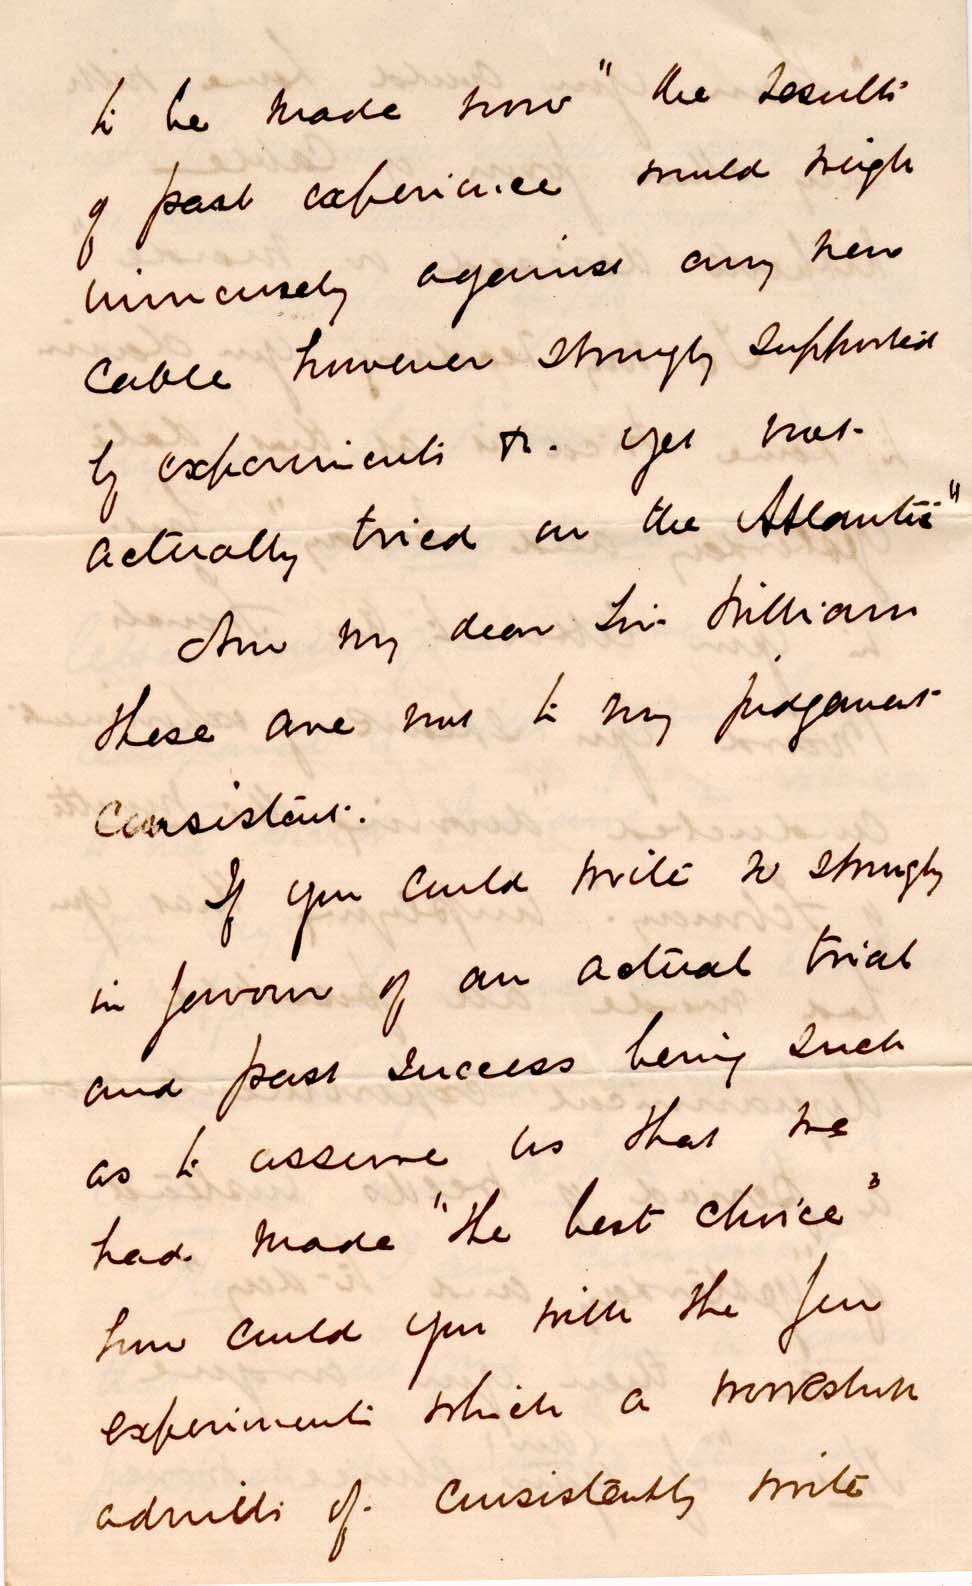 to be made now "the results
of past experience would weigh
immensely against any new
cable however strongly supported
by experiments &c. yet not
actually tried on the Atlantic"
Now my dear Sir William
these are not to my judgement
consistent.
If you could write so strongly
in favour of an actual trial
and past success being such
as to assure us that we
had made "the best choice"
how could you with the few
experiments which a workshop
admits of consistently write